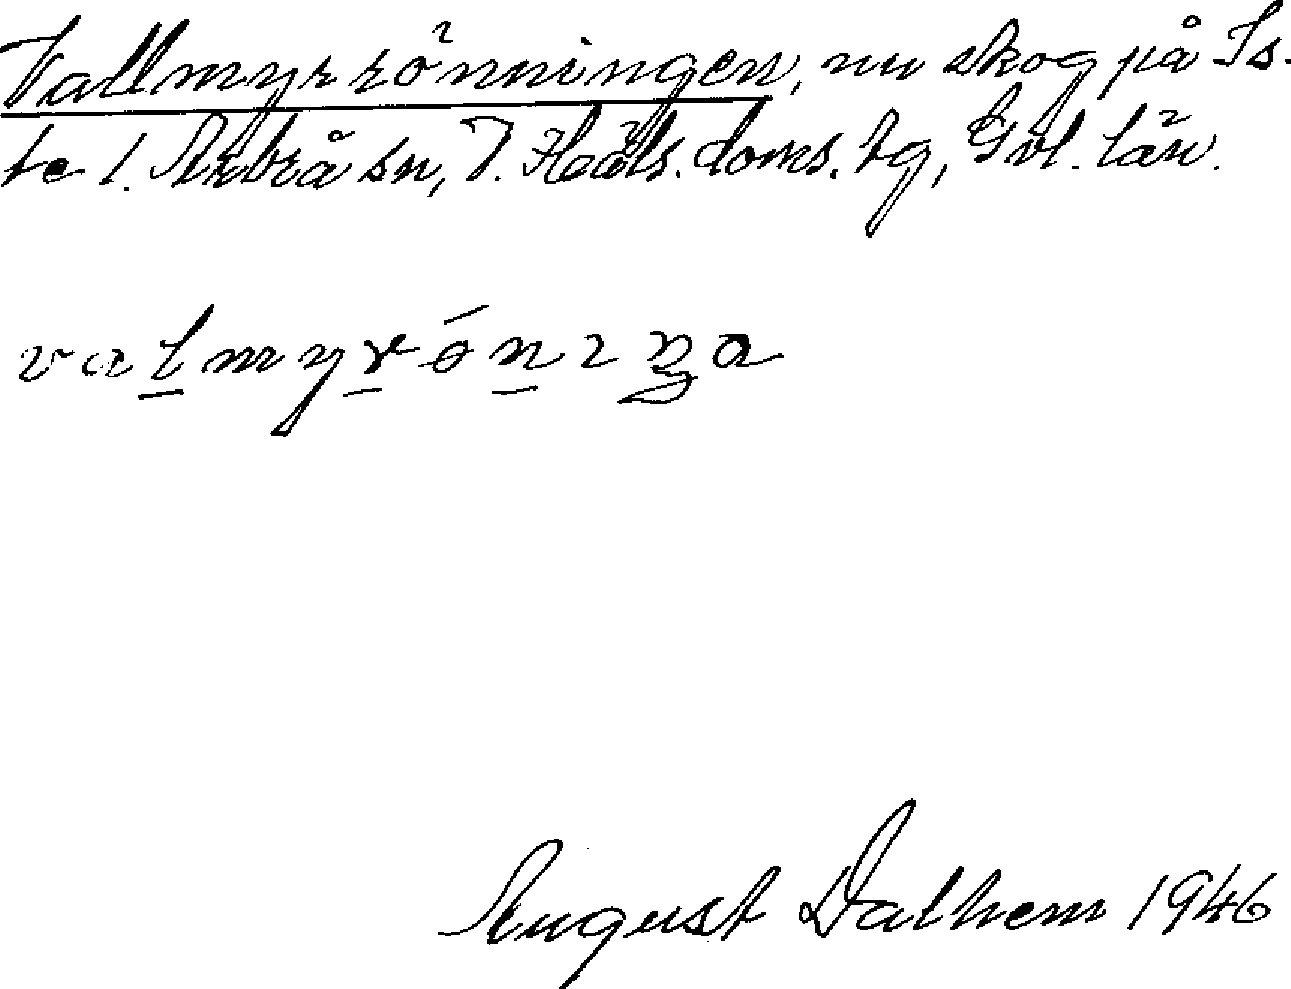 Vallmyrrönningen, nu skog på Is-
te 1. Arbrå sn, V. Häls. doms. tg, Gvl. län.
valmyrónıŋa
August Dalhem 1946